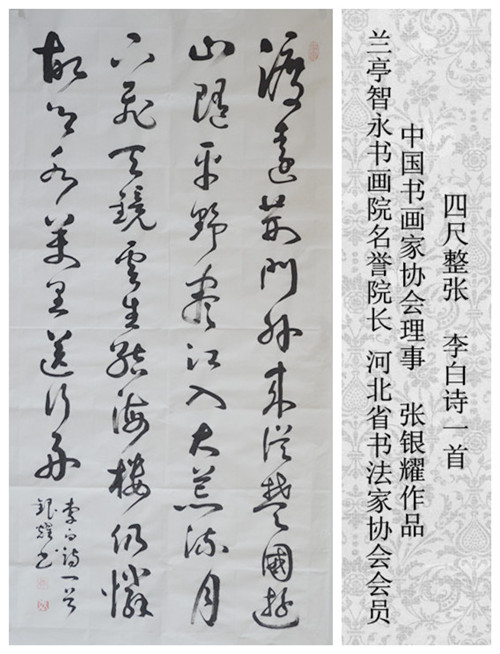 四尺整张 李白诗一首
中国书画家协会理事 张银耀作品
兰亭智永书画院名誉院长 河北省书法家协会会员
渡遠荆門外来從楚國遊
山隨平野盡江入大荒流月
下飛天鏡雲生結海樓仍憐
故鄉水萬里送行舟
李白詩一首
銀耀书